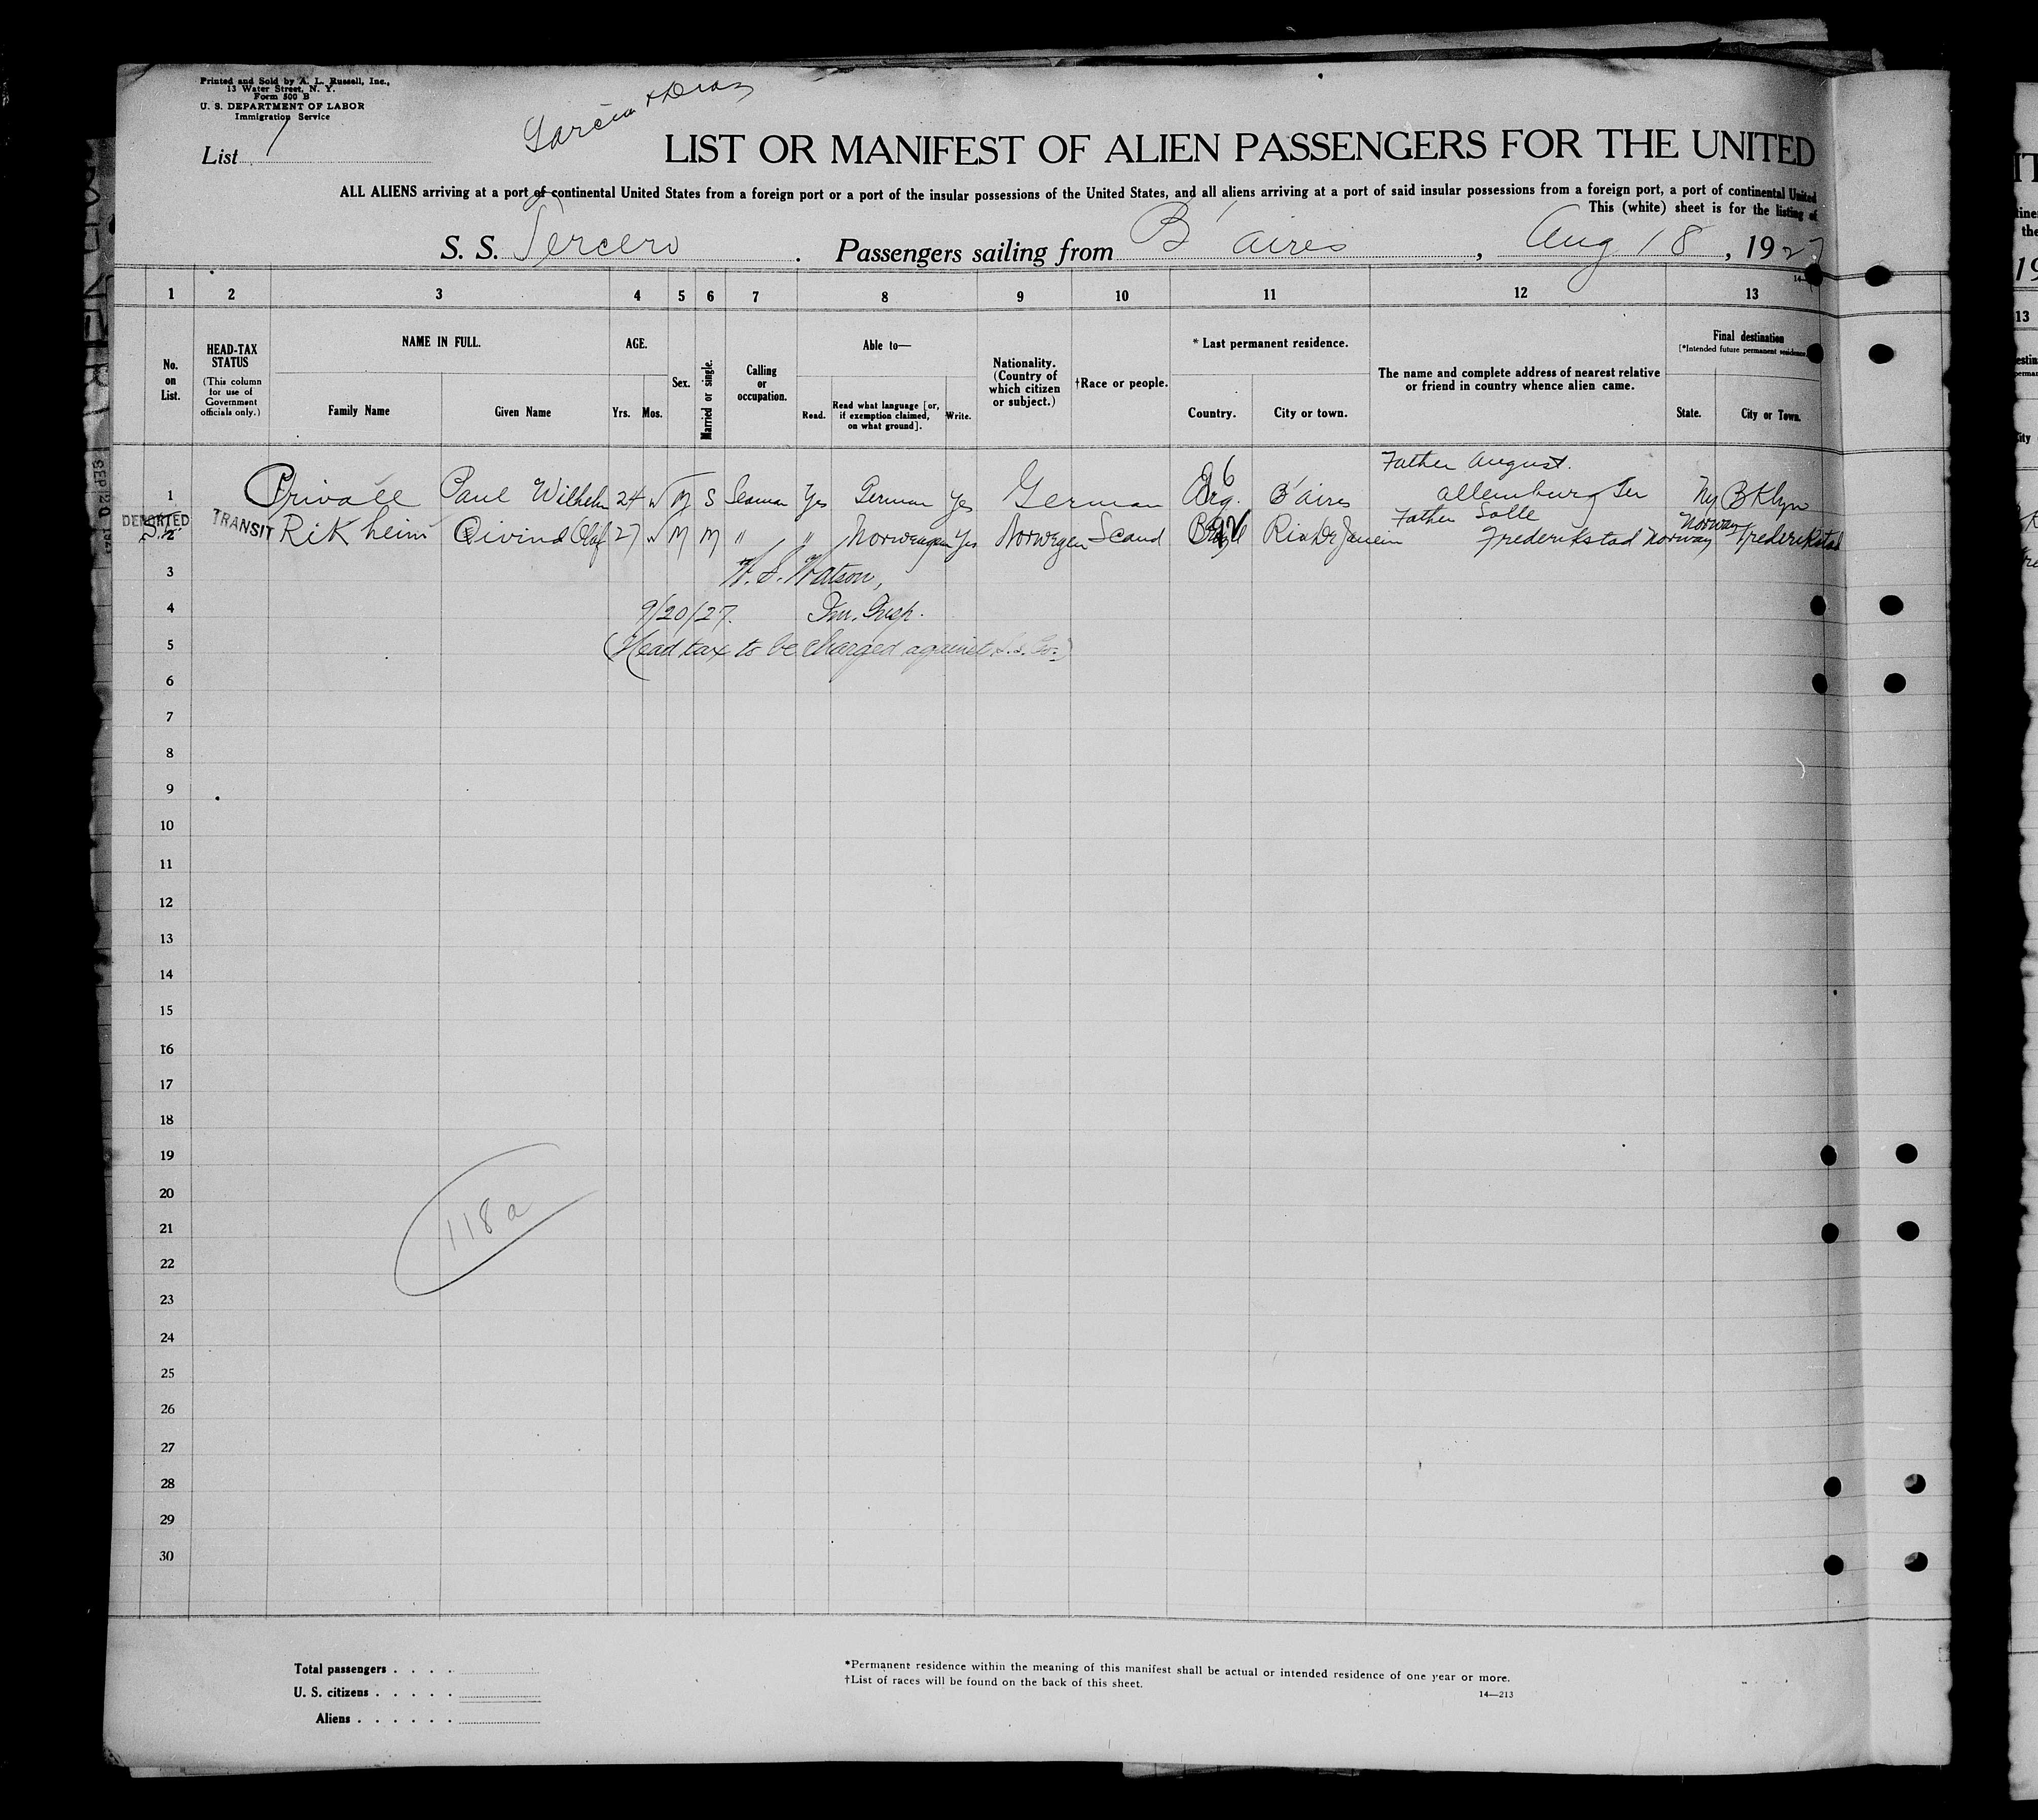 Printed and Sold by A. L. Russell, Inc.,
13 Water Street, N. Y.
Form 500 B
U. S. DEPARTMENT OF LABOR
Immigration Service
List 1
Garcia & Diaz
LIST OR MANIFEST OF ALIEN PASSENGERS FOR THE UNITED
ALL ALIENS arriving at a port of continental United States from a foreign port or a port of the insular possessions of the United States, and all aliens arriving at a port of said insular possessions from a foreign port, a port of continental United
This (white) sheet is for the listing of
S. S. Tercero . Passengers sailing from B'aires , Aug 18 , 1927
1 2 3 4 5 6 7 8 9 10 11 12 13
No. on List.
HEAD-TAX STATUS
(This column for use of Government officials only.)
NAME IN FULL.
Family Name
Given Name
AGE.
Yrs. Mos.
Sex.
Married or single.
Calling or occupation.
Able to—
Read.
Read what language [or, if exemption claimed, on what ground].
Write.
Nationality. (Country of which citizen or subject.)
†Race or people.
* Last permanent residence.
Country.
City or town.
The name and complete address of nearest relative or friend in country whence alien came.
Final destination
[*Intended future permanent residence.]
State.
City or Town.
Father August.
1 Paul Wilhelm 24 M S Seaman Yes German Yes German Arg. B'aires Ny BKlyn
Father
DEPORTED
2 TRANSIT RiKheim Oivind Olaf 27 M M " " Norwegen Yes Norwegen Scand Brazil Rio De Janeiro Frederikstad Norway Norway Frederikstad
3 Watson,
4 9/20/27. Im. Insp.
5 (Head tax to be charged against S.S. Co.)
6
7
8
9
10
11
12
13
14
15
16
17
18
19
20
118a
21
22
23
24
25
26
27
28
29
30
Total passengers . . . .
U. S. citizens . . . . .
Aliens . . . . . .
*Permanent residence within the meaning of this manifest shall be actual or intended residence of one year or more.
†List of races will be found on the back of this sheet.
14—213